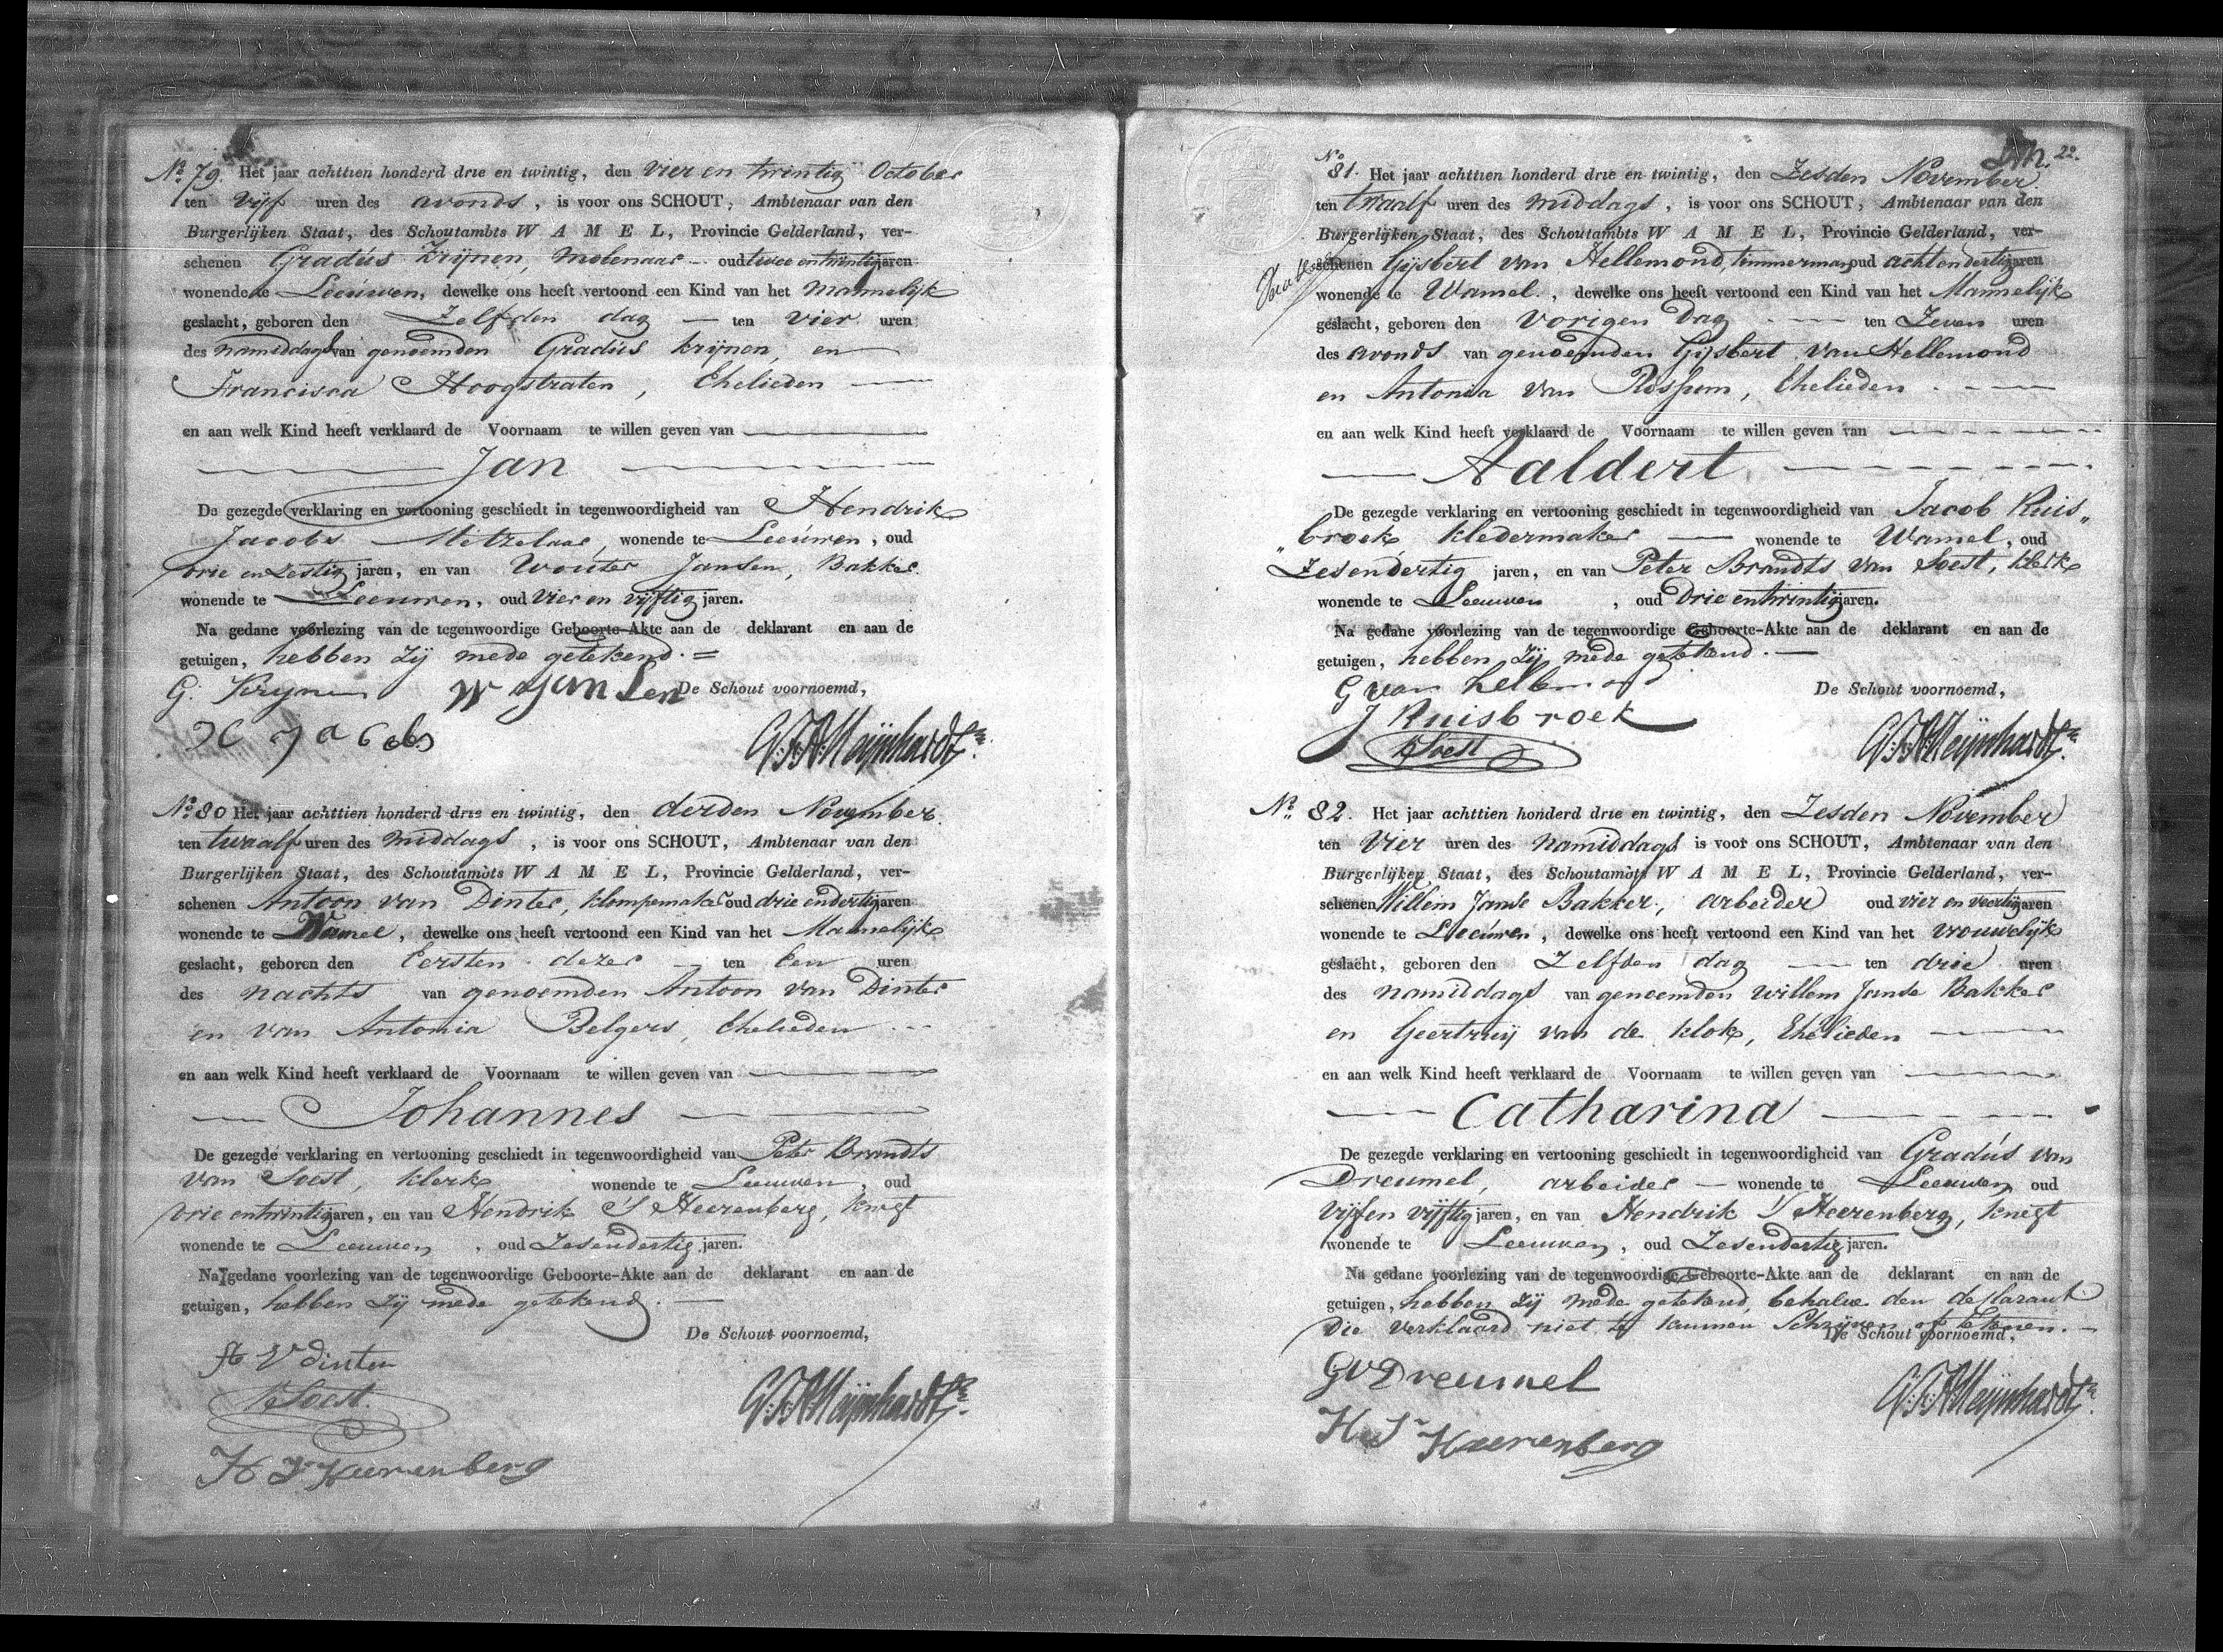 No. 79. Het jaar achttien honderd drie en twintig, den Vier en twintig October
ten Vijf uren des avonds, is voor ons SCHOUT, Ambtenaar van den
Burgerlijken Staat, des Schoutambts W A M E L, Provincie Gelderland, ver-
schenen Gradus Krijnen, Molenaar oud twee en twintig jaren
wonende te Leeuwen, dewelke ons heeft vertoond een Kind van het Mannelijk
geslacht, geboren den Zelfden dag ten vier uren
des namiddags van genoemden Gradus Krijnen, en
Francisca Hoogstraten, Ehelieden
en aan welk Kind heeft verklaard de Voornaam te willen geven van
Jan
De gezegde verklaring en vertooning geschiedt in tegenwoordigheid van Hendrik
Jacobs Metzelaar, wonende te Leeuwen, oud
drie en Zestig jaren, en van Wouter Jansen, Bakker
wonende te Leeuwen, oud Vier en vijftig jaren.
Na gedane voorlezing van de tegenwoordige Geboorte-Akte aan de deklarant en aan de
getuigen, hebben zij mede getekend. =
G. Krijnen W Jansen De Schout voornoemd,
H Jacobs G:F:A:Meijnhardt
No. 80 Het jaar achttien honderd drie en twintig, den derden November
ten twaalf uren des Middags, is voor ons SCHOUT, Ambtenaar van den
Burgerlijken Staat, des Schoutambts W A M E L, Provincie Gelderland, ver-
schenen Antoon van Dinter, klompemaker oud drie en dertig jaren
wonende te Wamel, dewelke ons heeft vertoond een Kind van het Mannelijk
geslacht, geboren den Eersten dezer ten Een uren
des nachts van genoemden Antoon van Dinter
en van Antonia Belgers, Ehelieden
en aan welk Kind heeft verklaard de Voornaam te willen geven van
Johannes
De gezegde verklaring en vertooning geschiedt in tegenwoordigheid van Peter Brandts
van Soest, klerk wonende te Leeuwen, oud
drie en twintig jaren, en van Hendrik S' Heerenberg, knegt
wonende te Leeuwen, oud Zesendertig jaren.
Na gedane voorlezing van de tegenwoordige Geboorte-Akte aan de deklarant en aan de
getuigen, hebben zij mede getekend.
De Schout voornoemd,
A V dinter
Soest. G:F:A:Meijnhardt
H S Heerenberg
22.
No. 81. Het jaar achttien honderd drie en twintig, den Zesden November
ten twaalf uren des Middags, is voor ons SCHOUT, Ambtenaar van den
Burgerlijken Staat, des Schoutambts W A M E L, Provincie Gelderland, ver-
schenen Gijsbert van Hellemond, timmerman oud acht en dertig jaren
wonende te Wamel, dewelke ons heeft vertoond een Kind van het Mannelijk
geslacht, geboren den Vorigen Dag ten Zeven uren
des avonds van genoemden Gijsbert van Hellemond
en Antonia van Rossum, Ehelieden
en aan welk Kind heeft verklaard de Voornaam te willen geven van
Aaldert
De gezegde verklaring en vertooning geschiedt in tegenwoordigheid van Jacob Ruis„
„broek kledermaker wonende te Wamel, oud
Zesendertig jaren, en van Peter Brandts van Soest, klerk
wonende te Leeuwen, oud Drie en twintig jaren.
Na gedane voorlezing van de tegenwoordige Geboorte-Akte aan de deklarant en aan de
getuigen, hebben zij mede getekend.
G van hellemond De Schout voornoemd,
J Ruisbroek
Soest G:F:A:Meijnhardt
No. 82. Het jaar achttien honderd drie en twintig, den Zesden November
ten Vier uren des Namiddags is voor ons SCHOUT, Ambtenaar van den
Burgerlijken Staat, des Schoutambts W A M E L, Provincie Gelderland, ver-
schenen Willem Janse Bakker, arbeider oud vier en veertig jaren
wonende te Leeuwen, dewelke ons heeft vertoond een Kind van het vrouwelijk
geslacht, geboren den Zelfden dag ten drie uren
des namiddags van genoemden Willem Janse Bakker
en Geertruij van de klok, Ehelieden
en aan welk Kind heeft verklaard de Voornaam te willen geven van
Catharina
De gezegde verklaring en vertooning geschiedt in tegenwoordigheid van Gradus van
Dreumel, arbeider wonende te Leeuwen oud
vijf en vijftig jaren, en van Hendrik S' Heerenberg, knegt
wonende te Leeuwen, oud Zesendertig jaren.
Na gedane voorlezing van de tegenwoordige Geboorte-Akte aan de deklarant en aan de
getuigen, hebben zij mede getekend, behalve den deklarant
die verklaard niet te kunnen Schrijven of tekenen.
De Schout voornoemd,
G V Dreumel G:F:A:Meijnhardt
H. S' Heerenberg